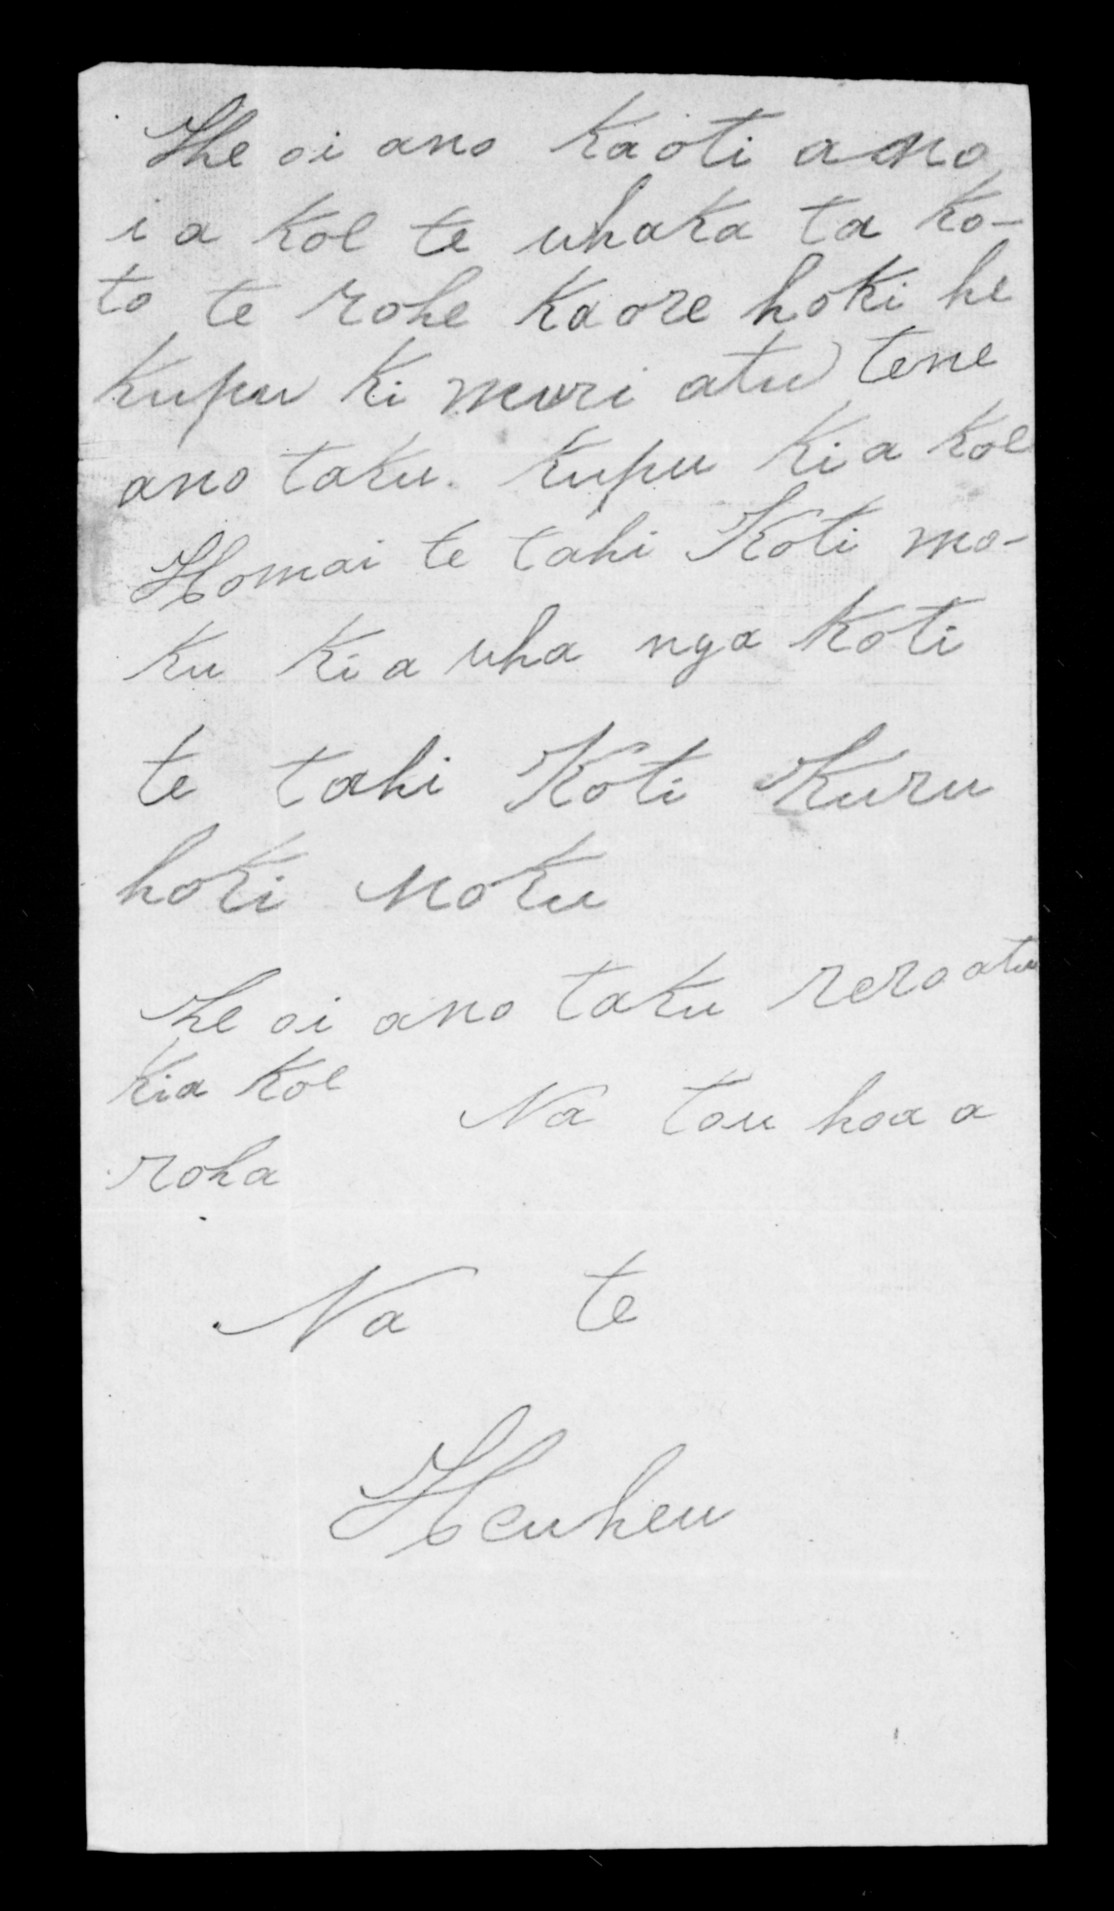 He oi ano Kaoti ano
i a koe te whaka ta ko-
to te rohe Kaore hoki he
Kupu ki muri atu tene
ano taku. Kupu Ki a koe
Homai te tahi Koti mo-
ku ki a wha nga koti
te tahi Koti Kuru
hoki moku
He oi ano taku reroatu
Kia Koe
Na tau hoa a
roha
Na te
Heuheu